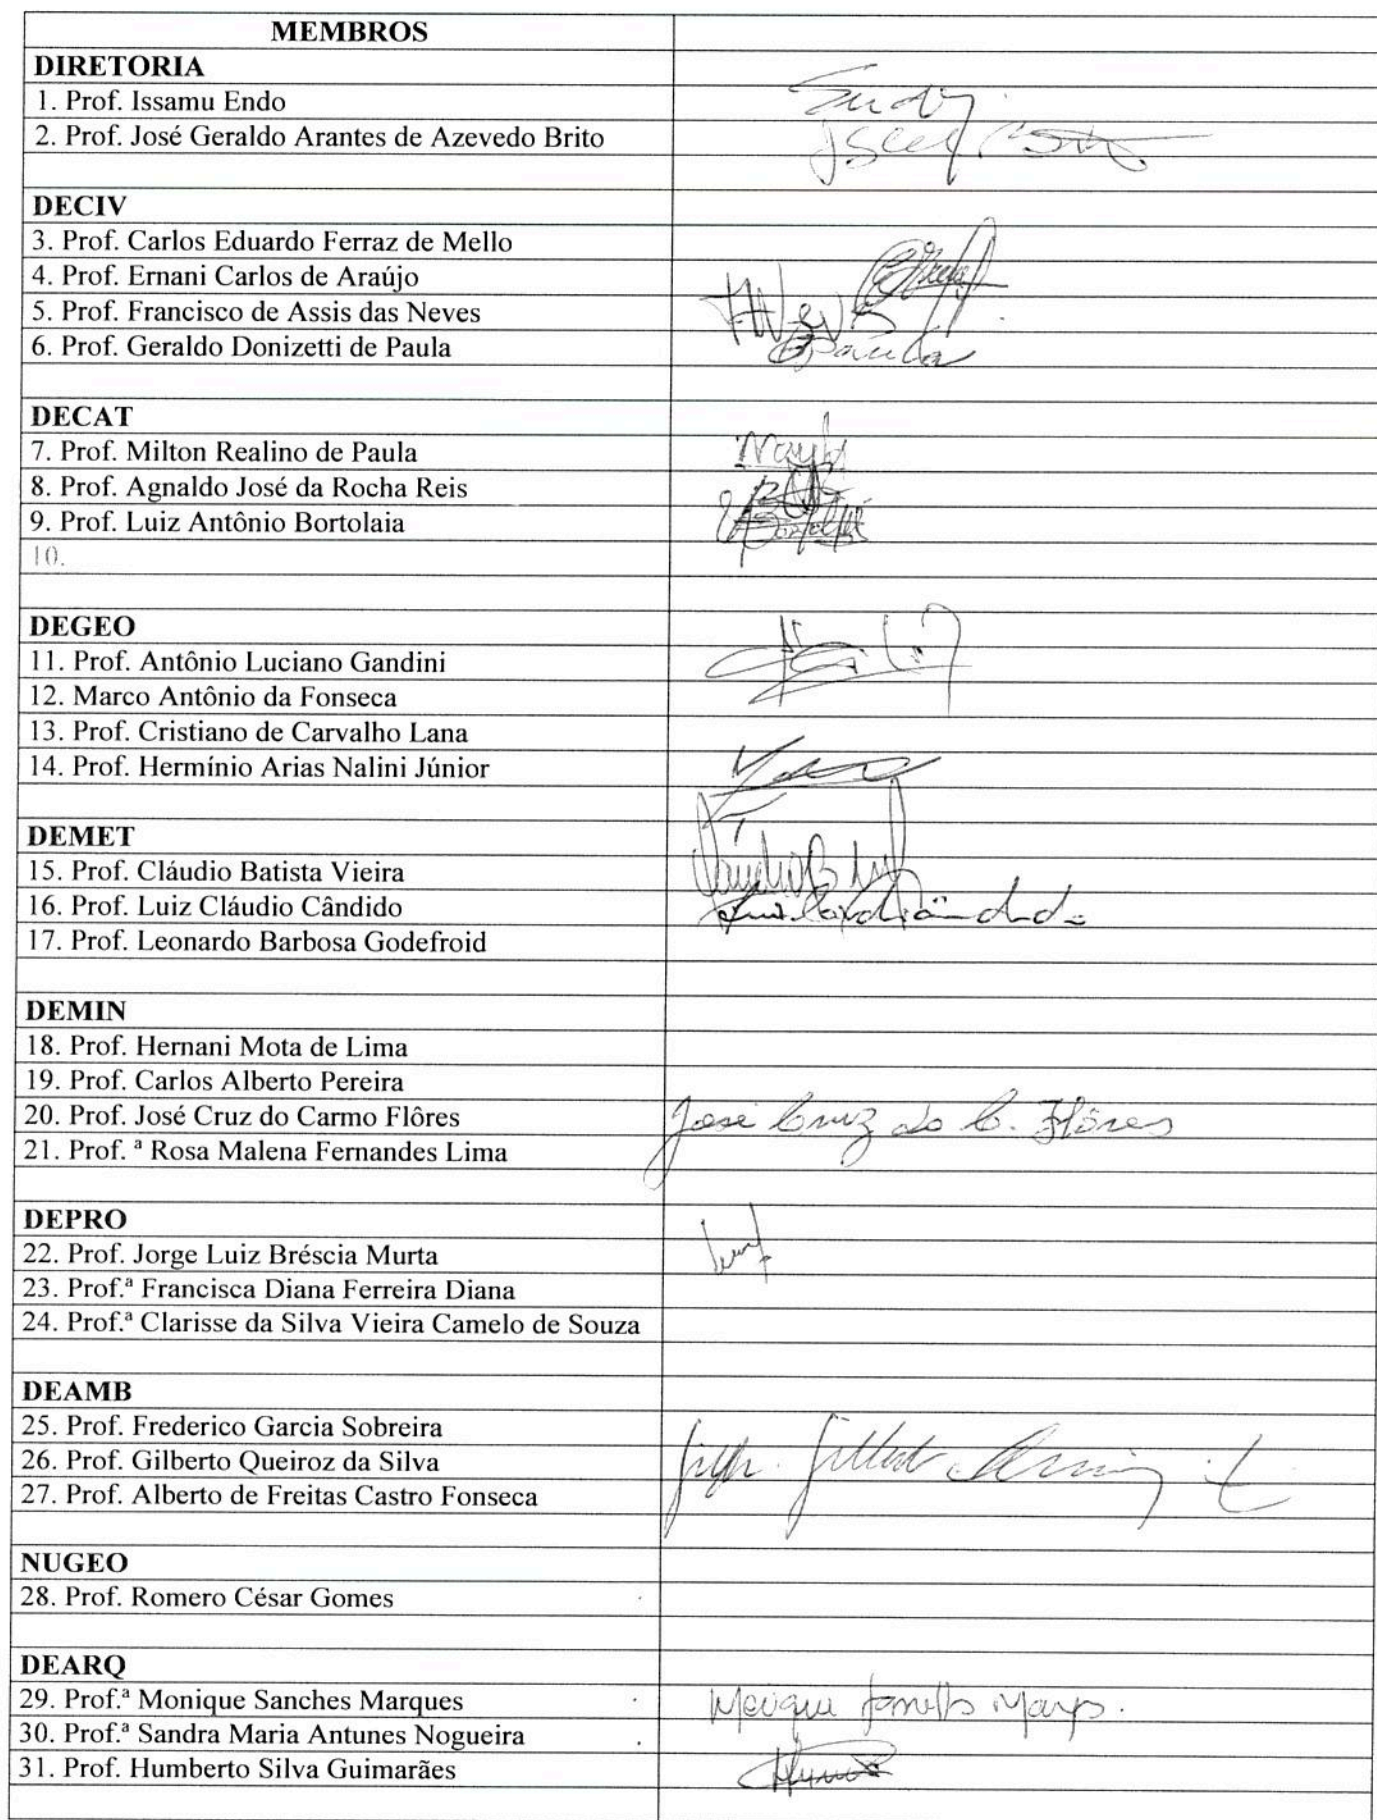 MEMBROS
DIRETORIA
1. Prof. Issamu Endo
2. Prof. José Geraldo Arantes de Azevedo Brito
DECIV
3. Prof. Carlos Eduardo Ferraz de Mello
4. Prof. Ernani Carlos de Araújo
5. Prof. Francisco de Assis das Neves
6. Prof. Geraldo Donizetti de Paula
DECAT
7. Prof. Milton Realino de Paula
8. Prof. Agnaldo José da Rocha Reis
9. Prof. Luiz Antônio Bortolaia
10.
DEGEO
11. Prof. Antônio Luciano Gandini
12. Marco Antônio da Fonseca
13. Prof. Cristiano de Carvalho Lana
14. Prof. Hermínio Arias Nalini Júnior
DEMET
15. Prof. Cláudio Batista Vieira
16. Prof. Luiz Cláudio Cândido
17. Prof. Leonardo Barbosa Godefroid
DEMIN
18. Prof. Hernani Mota de Lima
19. Prof. Carlos Alberto Pereira
20. Prof. José Cruz do Carmo Flôres José Cruz do C. Flôres
21. Prof. ª Rosa Malena Fernandes Lima
DEPRO
22. Prof. Jorge Luiz Bréscia Murta
23. Prof.ª Francisca Diana Ferreira Diana
24. Prof.ª Clarisse da Silva Vieira Camelo de Souza
DEAMB
25. Prof. Frederico Garcia Sobreira
26. Prof. Gilberto Queiroz da Silva
27. Prof. Alberto de Freitas Castro Fonseca
NUGEO
28. Prof. Romero César Gomes
DEARQ
29. Prof.ª Monique Sanches Marques
30. Prof.ª Sandra Maria Antunes Nogueira
31. Prof. Humberto Silva Guimarães